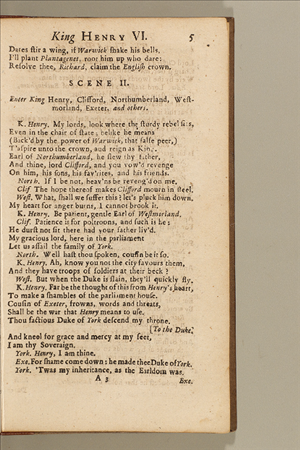 King HENRY VI. 5
Dares stir a wing, if Warwick shake his bells.
I'll plant Plantagenet, root him up who dare:
Resolve thee, Richard, claim the English crown.
SCENE II.
Enter King Henry, Clifford, Northumberland, West-
morland, Exeter, and others.
K. Henry. My lords, look where the sturdy rebel sits,
Even in the chair of state; belike he means
(Back'd by the power of Warwick, that false peer,)
T'aspire unto the crown, and reign as King.
Earl of Northumberland, he slew thy father,
And thine, lord Clifford, and you vow'd revenge
On him, his sons, his fav'rites, and his friends.
North. If I be not, heav'ns be reveng'd on me.
Clif. The hope thereof makes Clifford mourn in steel.
West. What, shall we suffer this? let's pluck him down,
My heart for anger burns, I cannot brook it.
K. Henry. Be patient, gentle Earl of Westmorland.
Clif. Patience is for poltroons, and such is he:
He durst not sit there had your father liv'd.
My gracious lord, here in the parliament
Let us assail the family of York.
North. Well hast thou spoken, cousin be it so.
K. Henry. Ah, know you not the city favours them,
And they have troops of soldiers at their beck?
West. But when the Duke is slain, they'll quickly fly.
K. Henry. Far be the thought of this from Henry's heart,
To make a shambles of the parliament house.
Cousin of Exeter, frowns, words and threats,
Shall be the war that Henry means to use.
Thou factious Duke of York descend my throne.
[To the Duke.
And kneel for grace and mercy at my feet,
I am thy Soveraign.
York. Henry, I am thine.
Exe. For shame come down: he made thee Duke of York.
York. 'Twas my inheritance, as the Earldom was.
A 3 Exe.